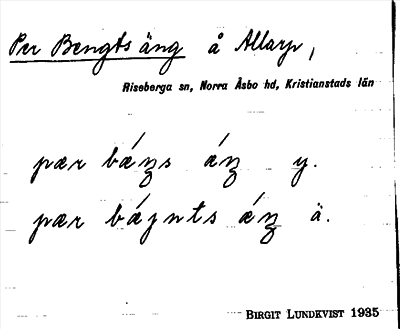 Per Bengts äng å Allarp,
Riseberga sn, Norra Åsbo hd, Kristianstads län
pær bǽŋs ǽŋ y.
pær bǽɟnts ǽŋ ä.
BIRGIT LUNDKVIST 1935